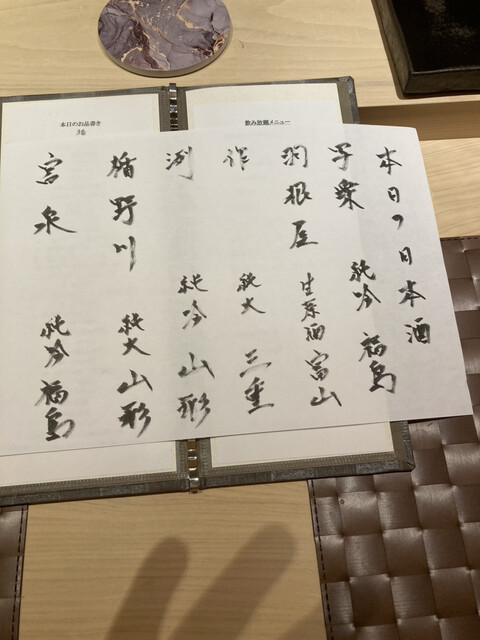 本日の日本酒
写楽 純吟 福島
羽根屋 生原酒 富山
作 純大 三重
洌 純吟 山形
楯野川 純大 山形
宮泉 純吟 福島
本日のお品書き
飲み放題メニュー